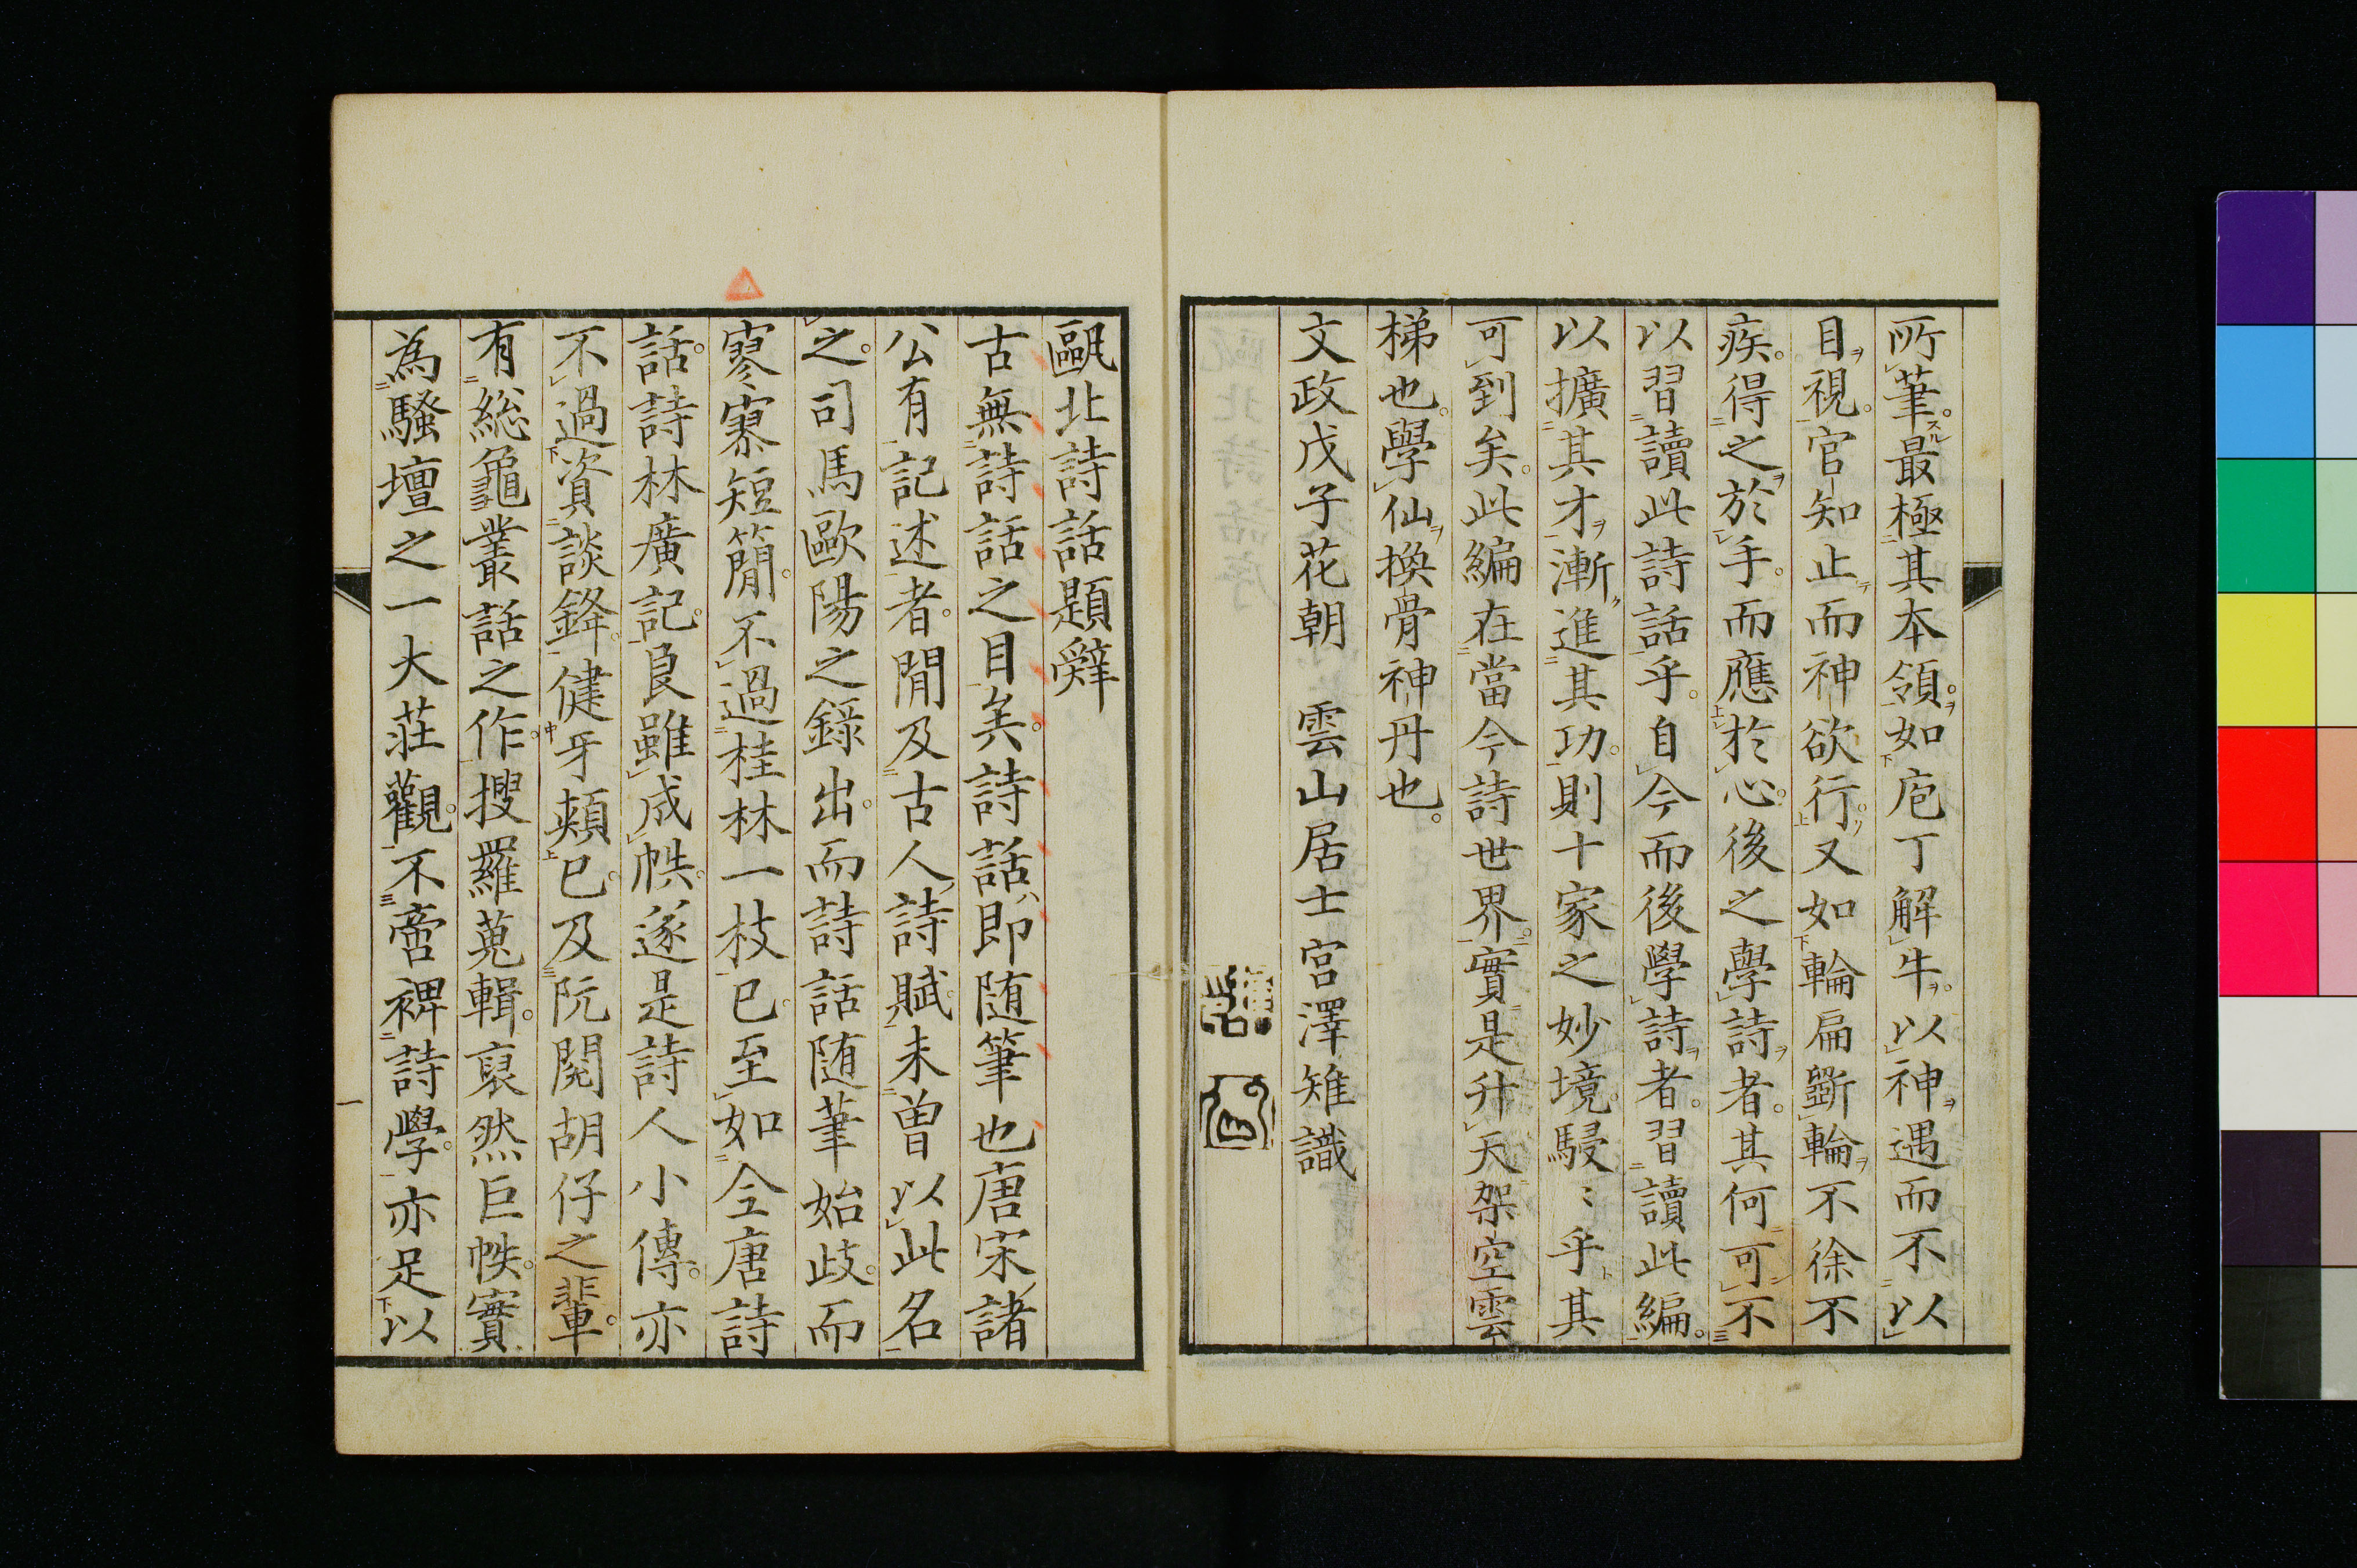 所筆最極其本領如庖丁解牛以神遇而不以
目視官知止而神欲行又如輪扁斲輪不徐不
疾得之於手而應於心後之學詩者其何可不
以習讀此詩話乎自今而後學詩者習讀此編
以擴其才漸進其功則十家之妙境駸〻乎其
可到矣此編在當今詩世界實是升天架空雲
梯也學仙換骨神丹也
文政戊子花朝　雲山居士宮澤雉識
甌北詩話題辭
古無詩話之目矣詩話即随筆也唐宋諸
公有記述者間及古人詩賦未曽以此名
之司馬歐陽之錄出而詩話随筆始歧而
寥寥短簡不過桂林一枝已至如全唐詩
話詩林廣記良雖成帙遂是詩人小傳亦
不過資談鋒健牙頰已及阮閱胡仔之輩
有総龜叢話之作搜羅蒐輯裒然巨帙實
為騷壇之一大莊觀不啻裨詩學亦足以
一